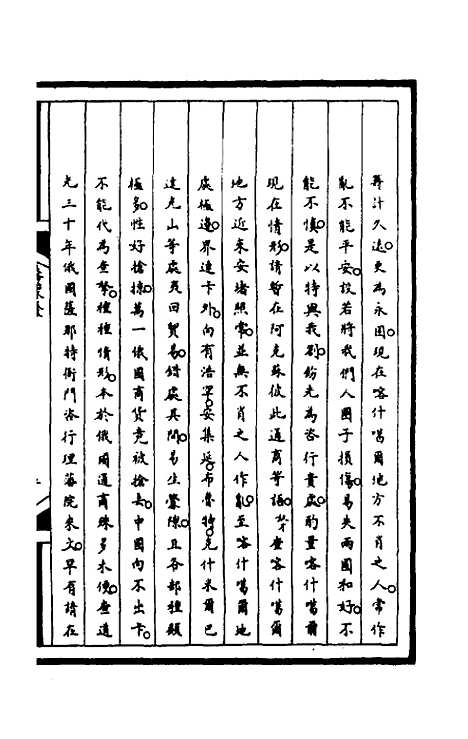 再計久遠更為永固現在喀什噶爾地方不肖之人常作
亂不能平安設若將我們人圈子損傷易失兩國和好不
能不慎是以特與我劄飭先為咨行貴處酌量喀什噶爾
現在情形請暫在阿克蘇彼此通商等語查喀什噶爾
地方近來安堵照常並無不肖之人作亂至喀什噶爾地
處極邊界連卡外向有浩罕安集延布魯特克什米爾巴
達克山等處夷回貿易錯處其間易生釁隙且各部種類
極多性好搶掠萬一俄國商貨竟被搶去中國向不出卡
不能代為查拏種種情形本於俄國通商殊多未便查道
光三十年俄國薩那特衙門咨行理藩院來文早有請在